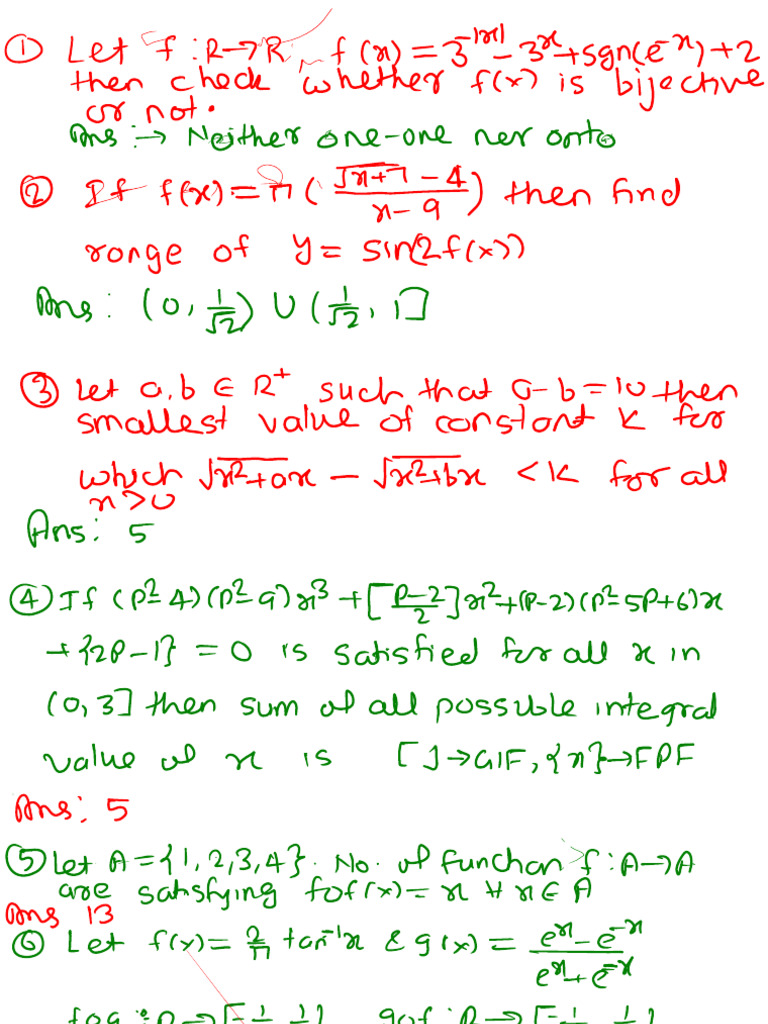 ① Let f : R→R, f(x) = 3^{-|x|} - 3^x + sgn(e^{-x}) + 2
then check whether f(x) is bijective
or not.
Ans :→ Neither one-one ner onto
② If f(x) = π ( (√(x+7) - 4) / (x - 9) ) then find
range of y = sin(2f(x))
Ans : (0, 1/√2) ∪ (1/√2, 1]
③ Let a, b ∈ R^+ such that a-b = 10 then
smallest value of constant K for
which √(x²+ax) - √(x²+bx) < K for all
x > 0
Ans: 5
④ If (P²-4)(P²-9)x³ + [(P-2)/2]x² + (P-2)(P²-5P+6)x
+ {2P-1} = 0 is satisfied for all x in
(0, 3] then sum of all possible integral
value of x is [ ]→GIF, {x}→FPF
Ans: 5
⑤ Let A = {1, 2, 3, 4}. No. of function f : A→A
are satisfying fof(x) = x ∀ x ∈ A
Ans 13
⑥ Let f(x) = 2/π tan^{-1}x & g(x) = (e^x - e^{-x}) / (e^x + e^{-x})